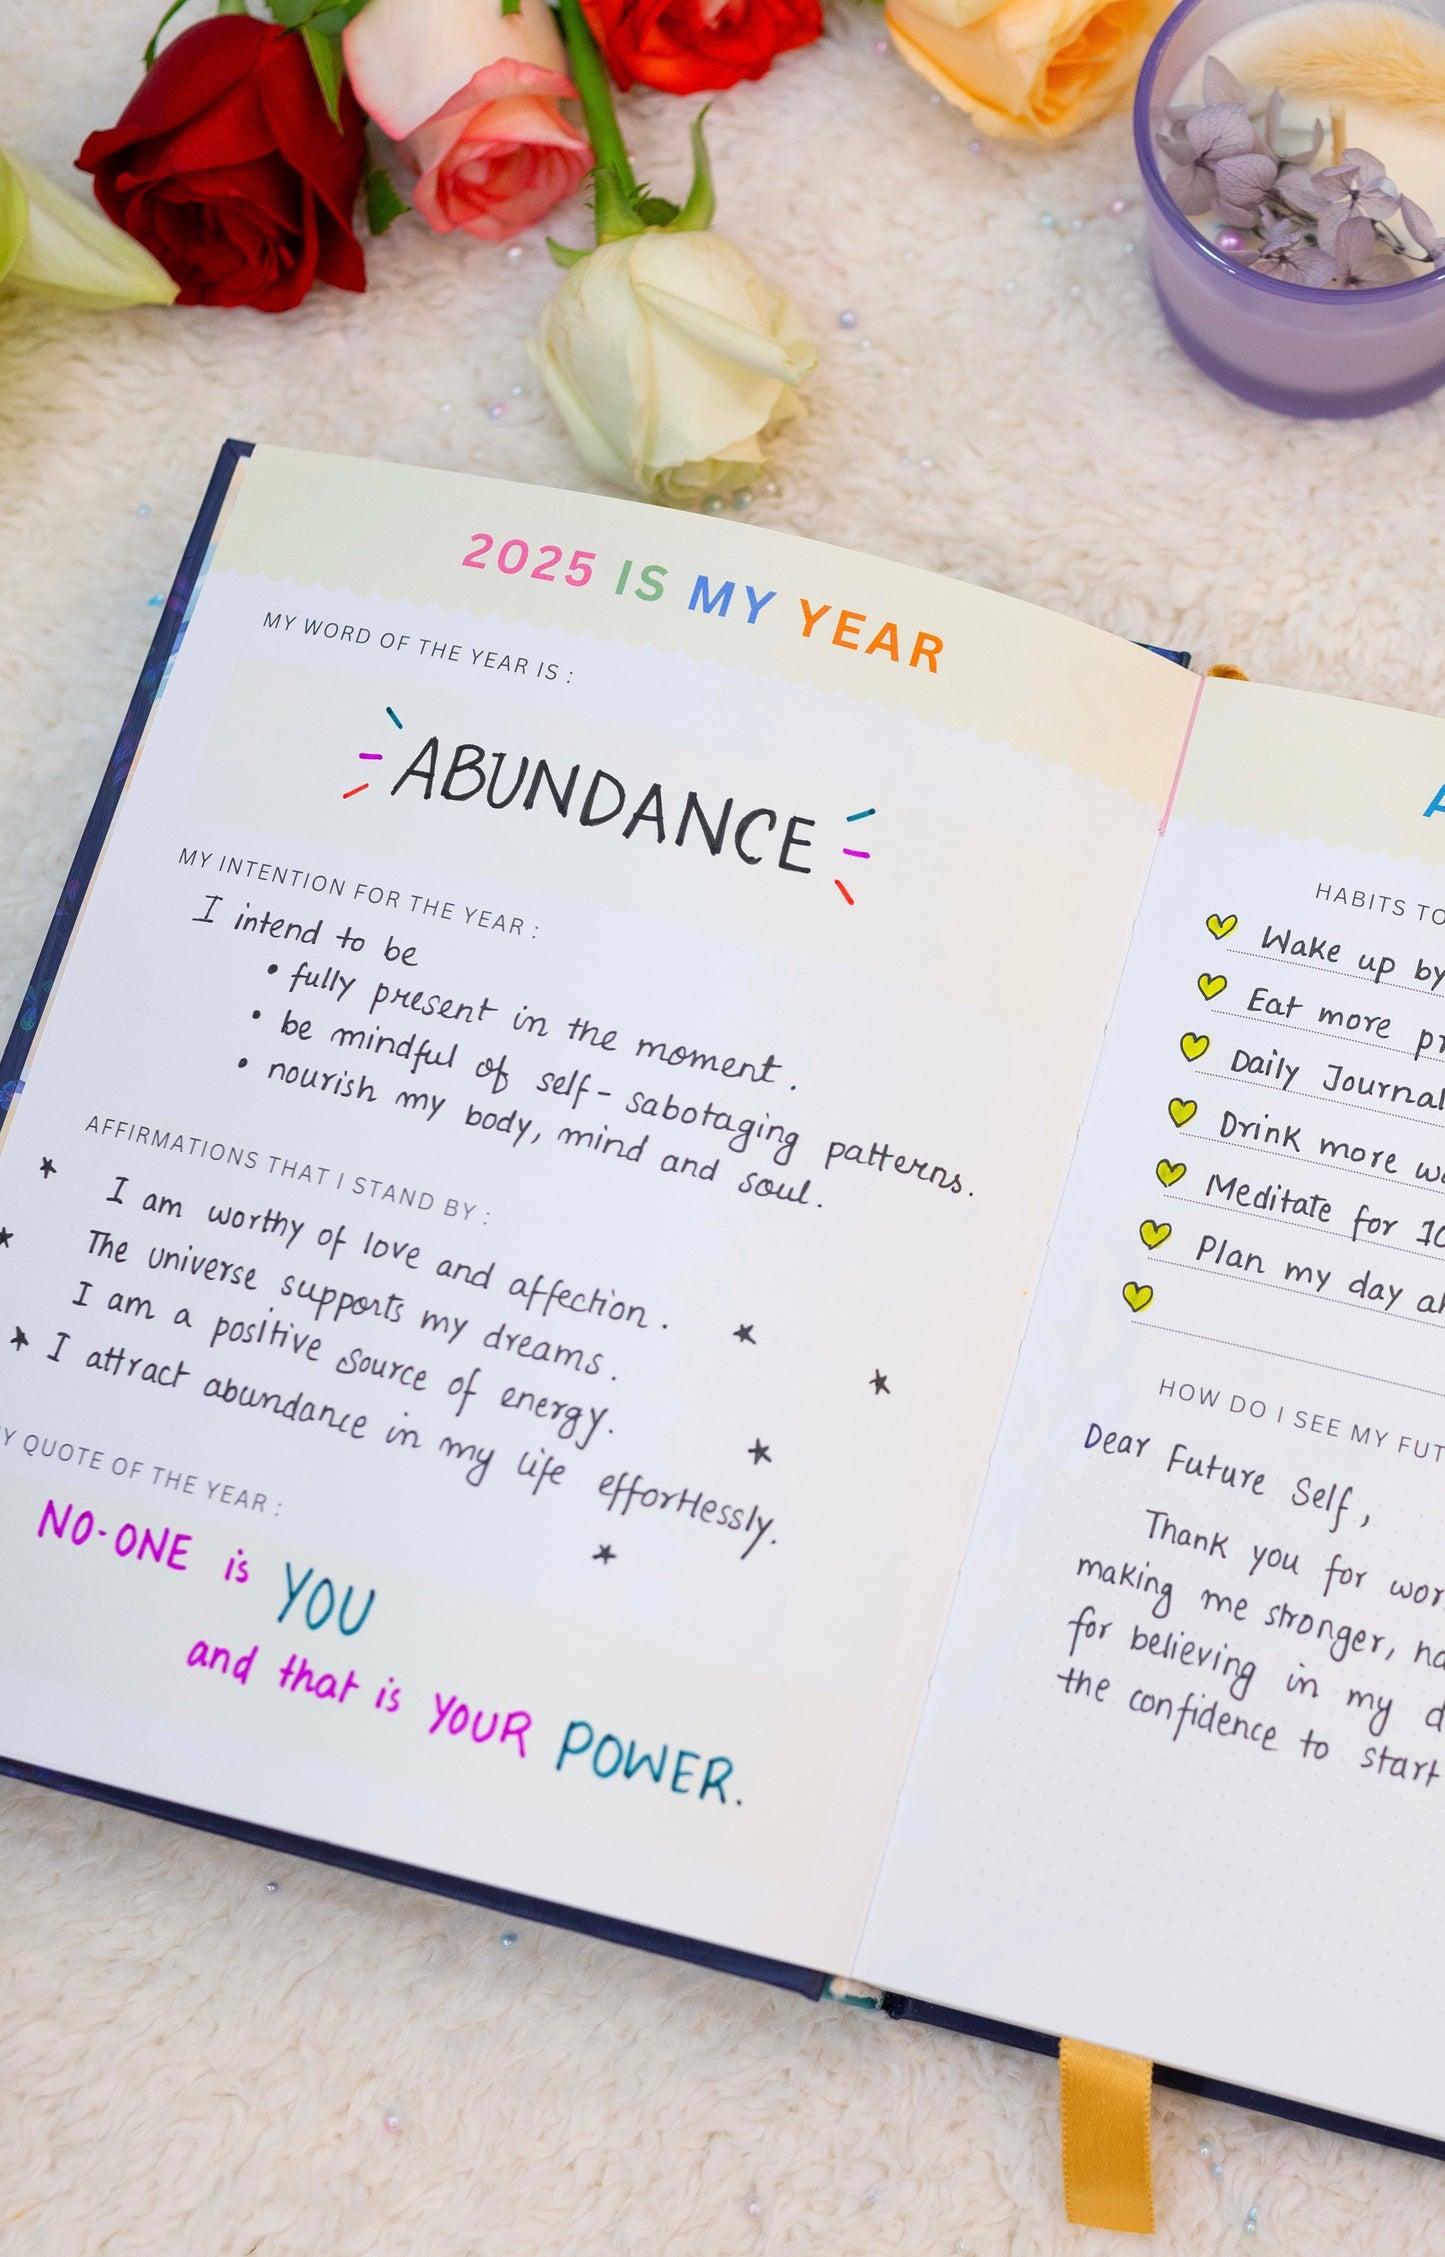 2025 IS MY YEAR
MY WORD OF THE YEAR IS :
ABUNDANCE
MY INTENTION FOR THE YEAR :
I intend to be
• fully present in the moment.
• be mindful of self-sabotaging patterns.
• nourish my body, mind and soul.
AFFIRMATIONS THAT I STAND BY :
I am worthy of love and affection.
The universe supports my dreams.
I am a positive source of energy.
I attract abundance in my life effortlessly.
QUOTE OF THE YEAR :
NO-ONE is YOU
and that is YOUR POWER.
HABITS TO
Wake up by
Eat more
Daily Journal
Drink more
Meditate for
Plan my day
HOW DO I SEE MY
Dear Future Self,
Thank you for
making me stronger,
for believing in my
the confidence to start